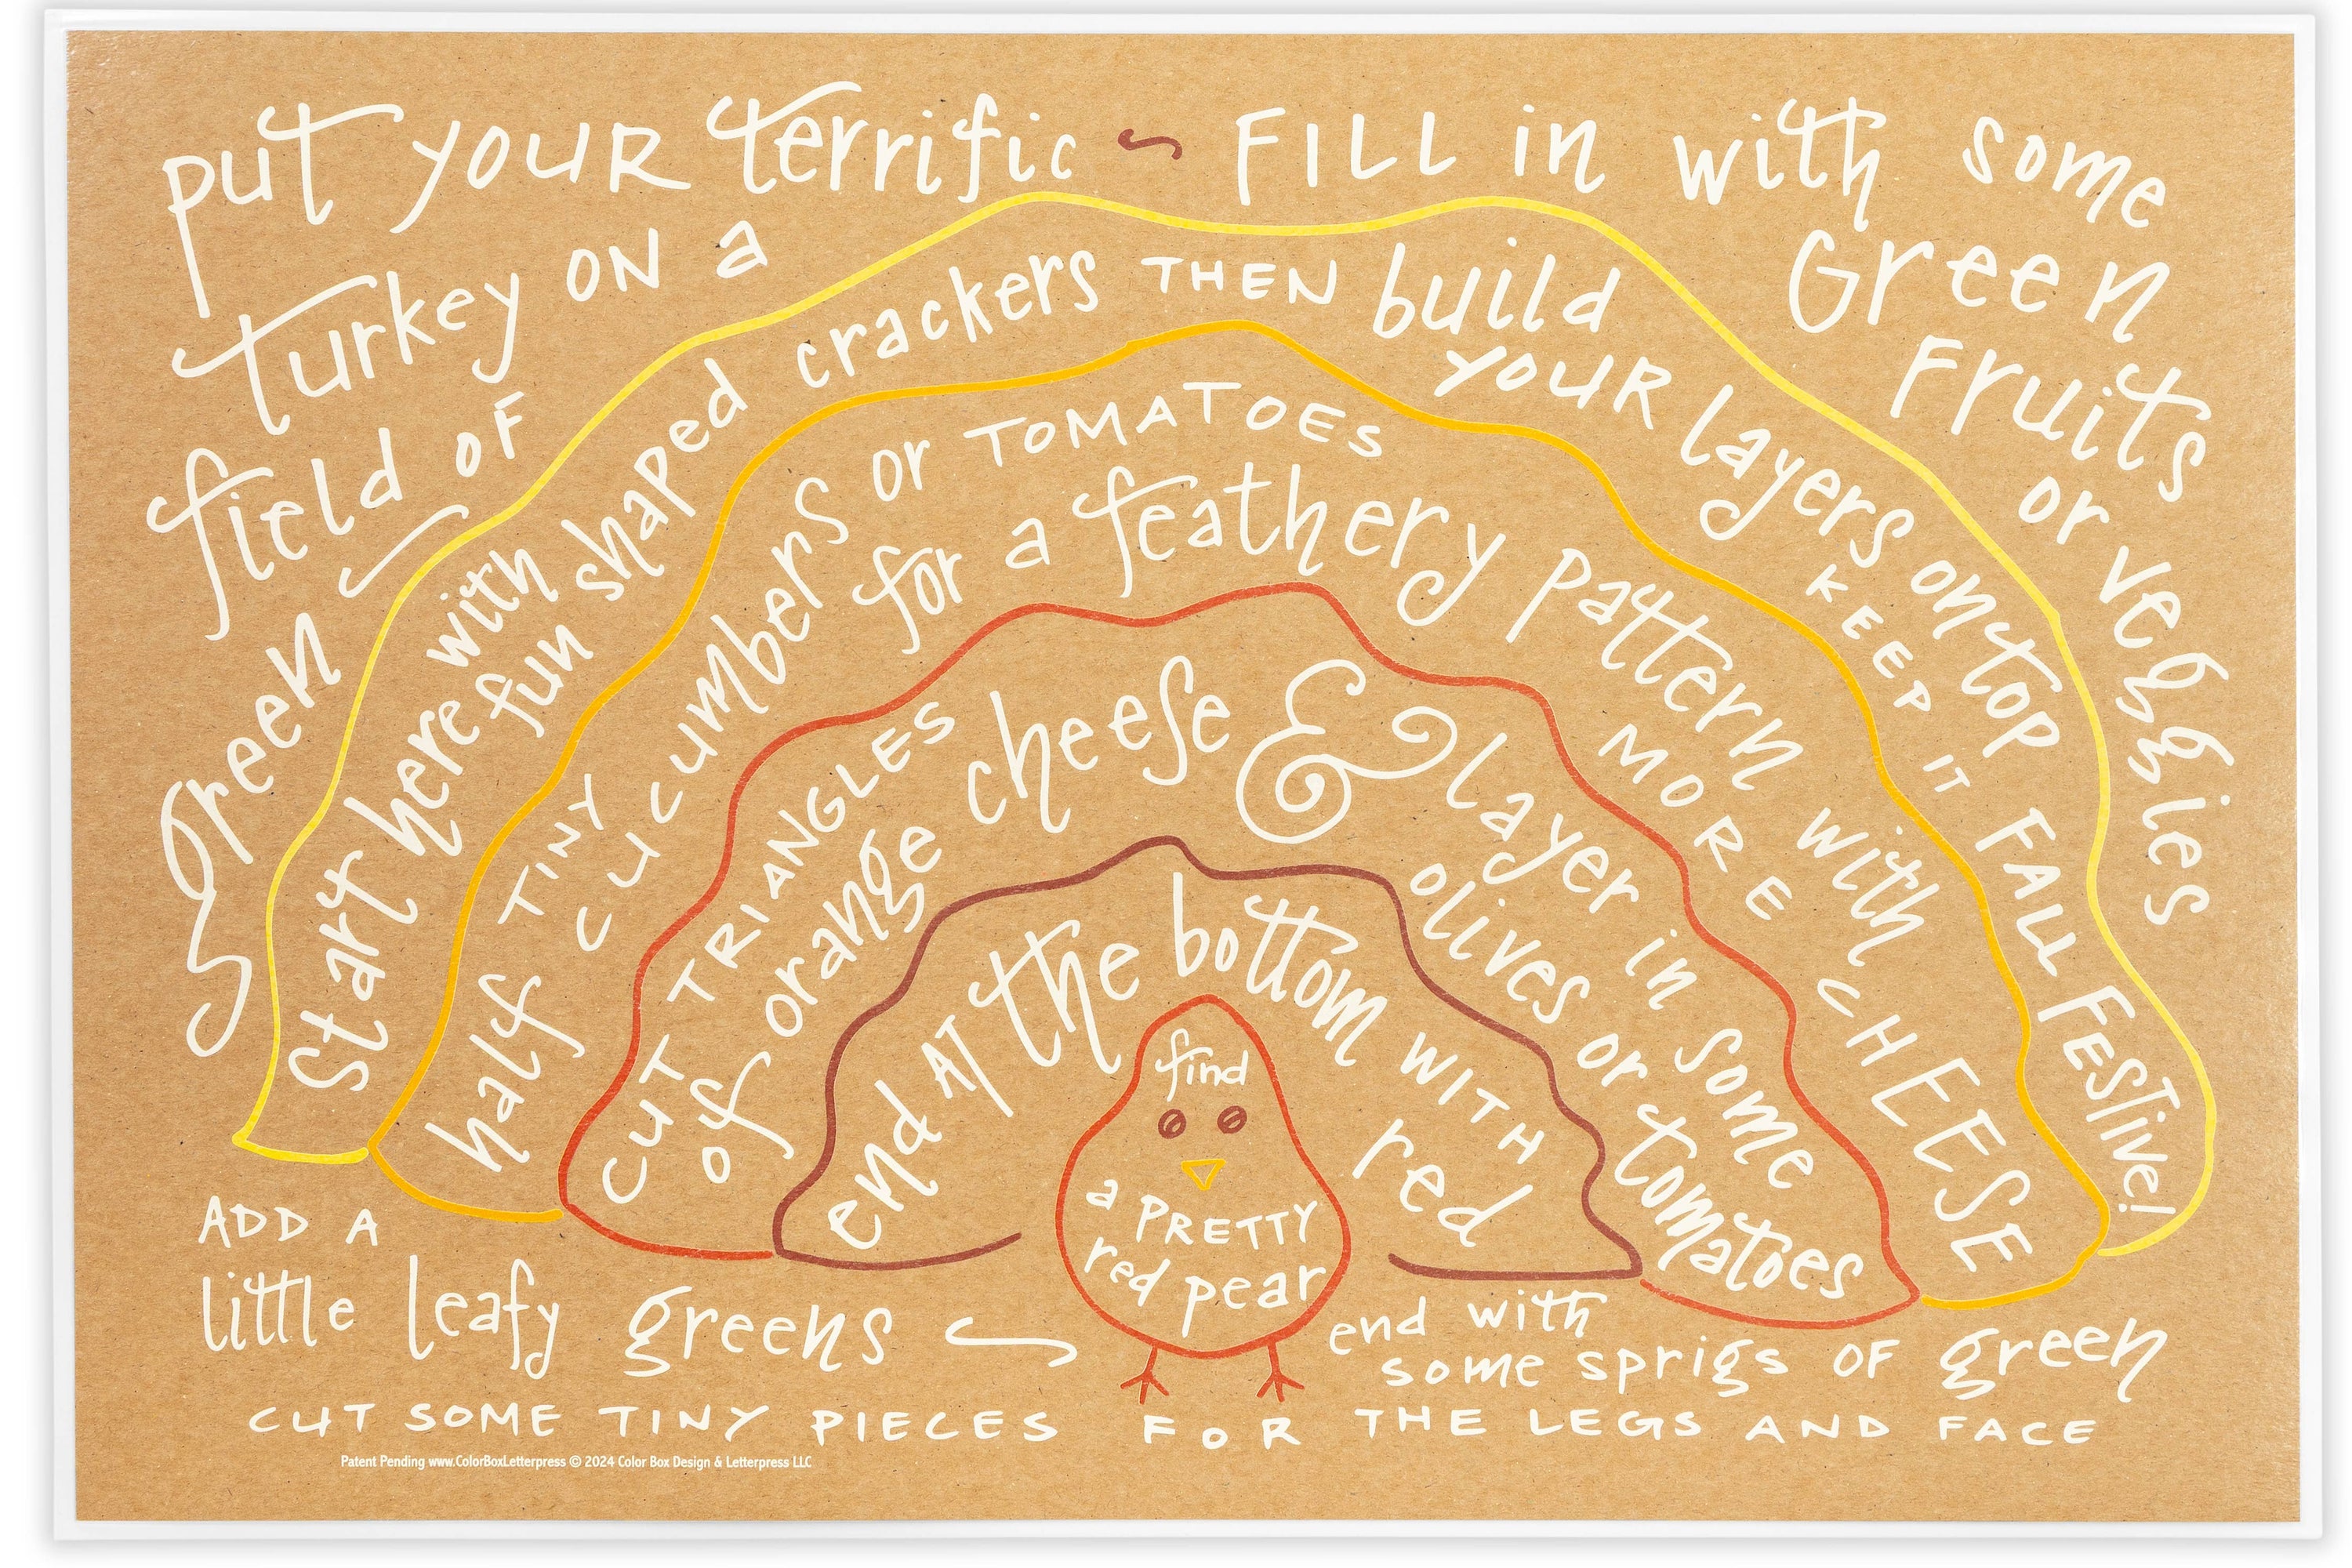 put YOUR terrific ~ FILL in with some
turkey ON a
field OF
green
Green
Fruits
or veggies
Start here with
fun shaped crackers THEN build
YOUR layers on top
KEEP IT FALL FESTIVE!
half TINY
CUCUMBERS or TOMATOES
for a feathery pattern with
MORE CHEESE
CUT TRIANGLES
of orange cheese & layer in some
olives or tomatoes
end AT the bottom WITH
red
find
a PRETTY
red pear
ADD A
little leafy greens
end with
some sprigs OF green
CUT SOME TINY PIECES FOR THE LEGS AND FACE
Patent Pending www.ColorBoxLetterpress © 2024 Color Box Design & Letterpress LLC